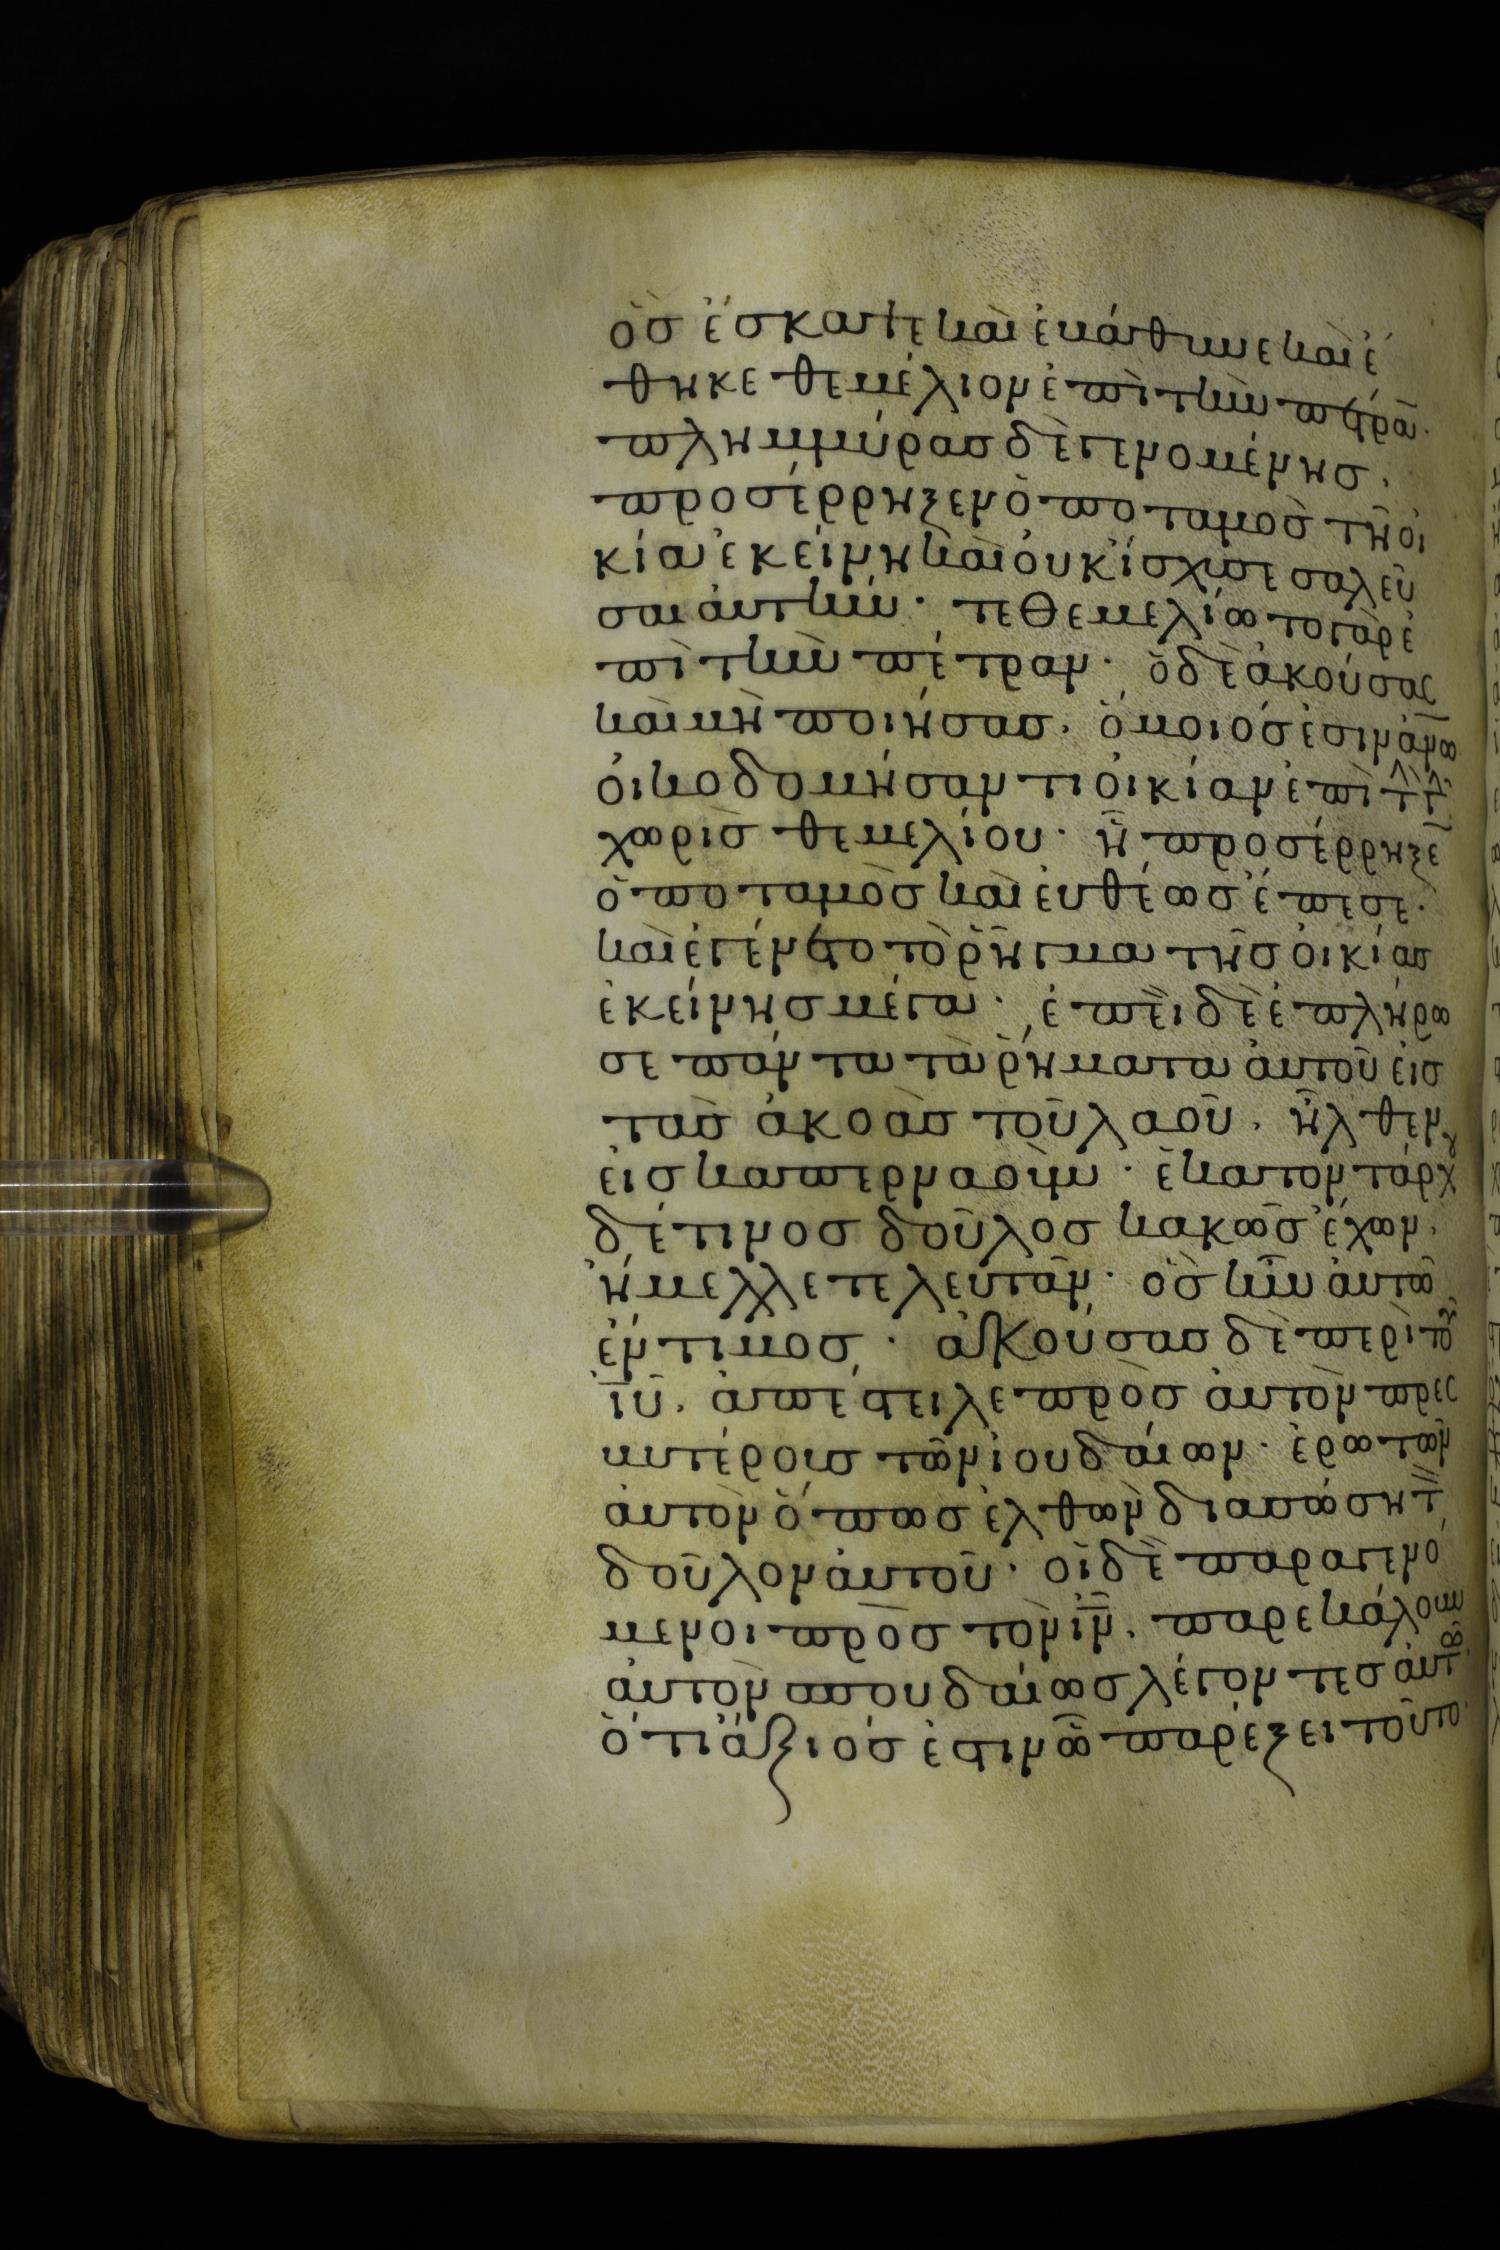 ὃσ ἔσκαψε καὶ ἐβάθυνε καὶ ἔ
θηκε θεμέλιον ἐπὶ τὴν πέτρα̅·
πλημμύρασ δὲ γενομένησ·
προσέρρηξεν ὁ ποταμὸσ τῆ οἰ
κία ἐκείνη καὶ οὐκ ἴσχυσε σαλεῦ
σαι αὐτὴν· τεθεμελίωτο γὰρ ἐ
πὶ τὴν πέτραν· ὁ δὲ ἀκούσας
καὶ μὴ ποιήσασ· ὅμοιόσ ἐστιν ἀν̅ω
οἰκοδομήσαντι οἰκίαν ἐπὶ τ γ
χωρὶσ θεμελίου· ἧ προσέρρηξε̅
ὁ ποταμὸσ καὶ εὐθέωσ ἔπεσε·
καὶ ἐγένετο τὸ ῥῆγμα τῆσ οἰκίασ
ἐκείνησ μέγα· ἐπεὶ δὲ ἐπλήρω
σε πάντα τὰ ῥήματα αὐτοῦ εἰσ
τὰσ ἀκοὰσ τοῦ λαοῦ· ἦλθεν
εἰσ καπερναούμ· ἑκατοντάρχου
δέ τινοσ δοῦλοσ κακῶσ ἔχων·
ἤμελλε τελευτᾶν· ὃσ ἦν αὐτῶ
ἔντιμοσ· ἀκούσασ δὲ περὶ τοῦ
ι̅υ̅· ἀπέστειλε πρὸσ αὐτὸν πρεσ
βυτέρουσ τῶν ἰουδαίων· ἐρωτῶν
αὐτὸν ὅπωσ ἐλθὼν διασώση τ
δοῦλον αὐτοῦ· οἱ δὲ παραγενό
μενοι πρὸσ τὸν ι̅ν̅· παρεκάλουν
αὐτὸν σπουδαίωσ λέγοντεσ αὐτῶ
ὅτι ἄξιόσ ἐστιν ὧ παρέξει τοῦτο·